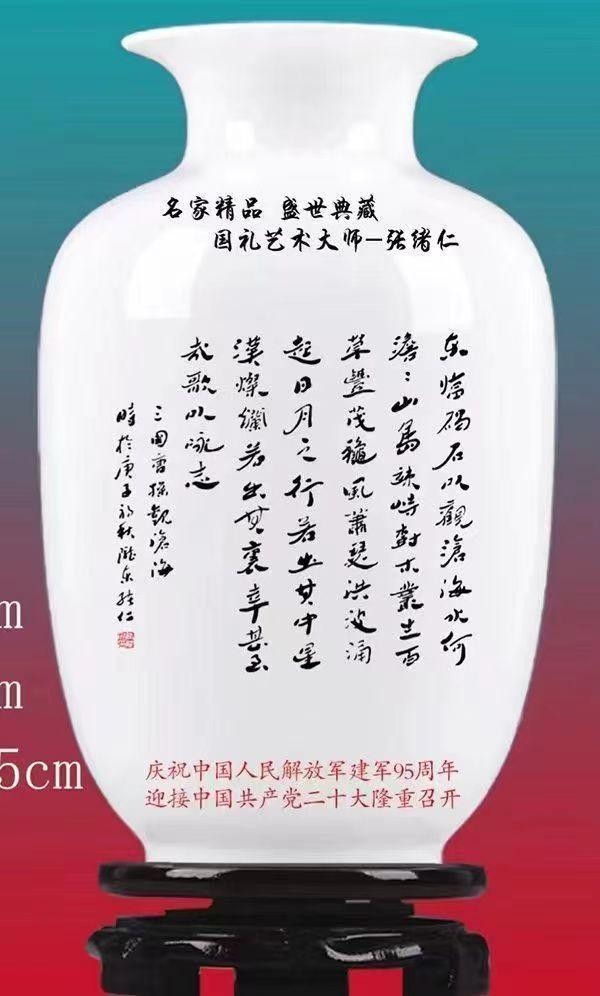 名家精品 盛世典藏
国礼艺术大师—张绪仁
东临碣石以觀滄海水何
澹〻山島竦峙樹木叢生百
草豐茂穐風蕭瑟洪波涌
起日月之行若出其中星
漢燦爛若出其裏幸甚至
哉歌以咏志
三国曹操觀滄海
時於庚子初秋隴东绪仁
m
m
5cm
庆祝中国人民解放军建军95周年
迎接中国共产党二十大隆重召开